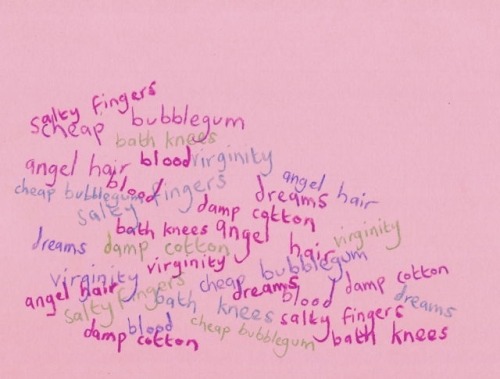 salty fingers
cheap bubblegum
bath knees
angel hair blood virginity
cheap bubblegum blood fingers dreams angel hair
salty damp cotton
bath knees angel hair virginity
dreams damp cotton
virginity virginity cheap bubblegum
angel hair salty fingers dreams blood damp cotton
bath knees salty fingers dreams
damp cotton blood cheap bubblegum bath knees